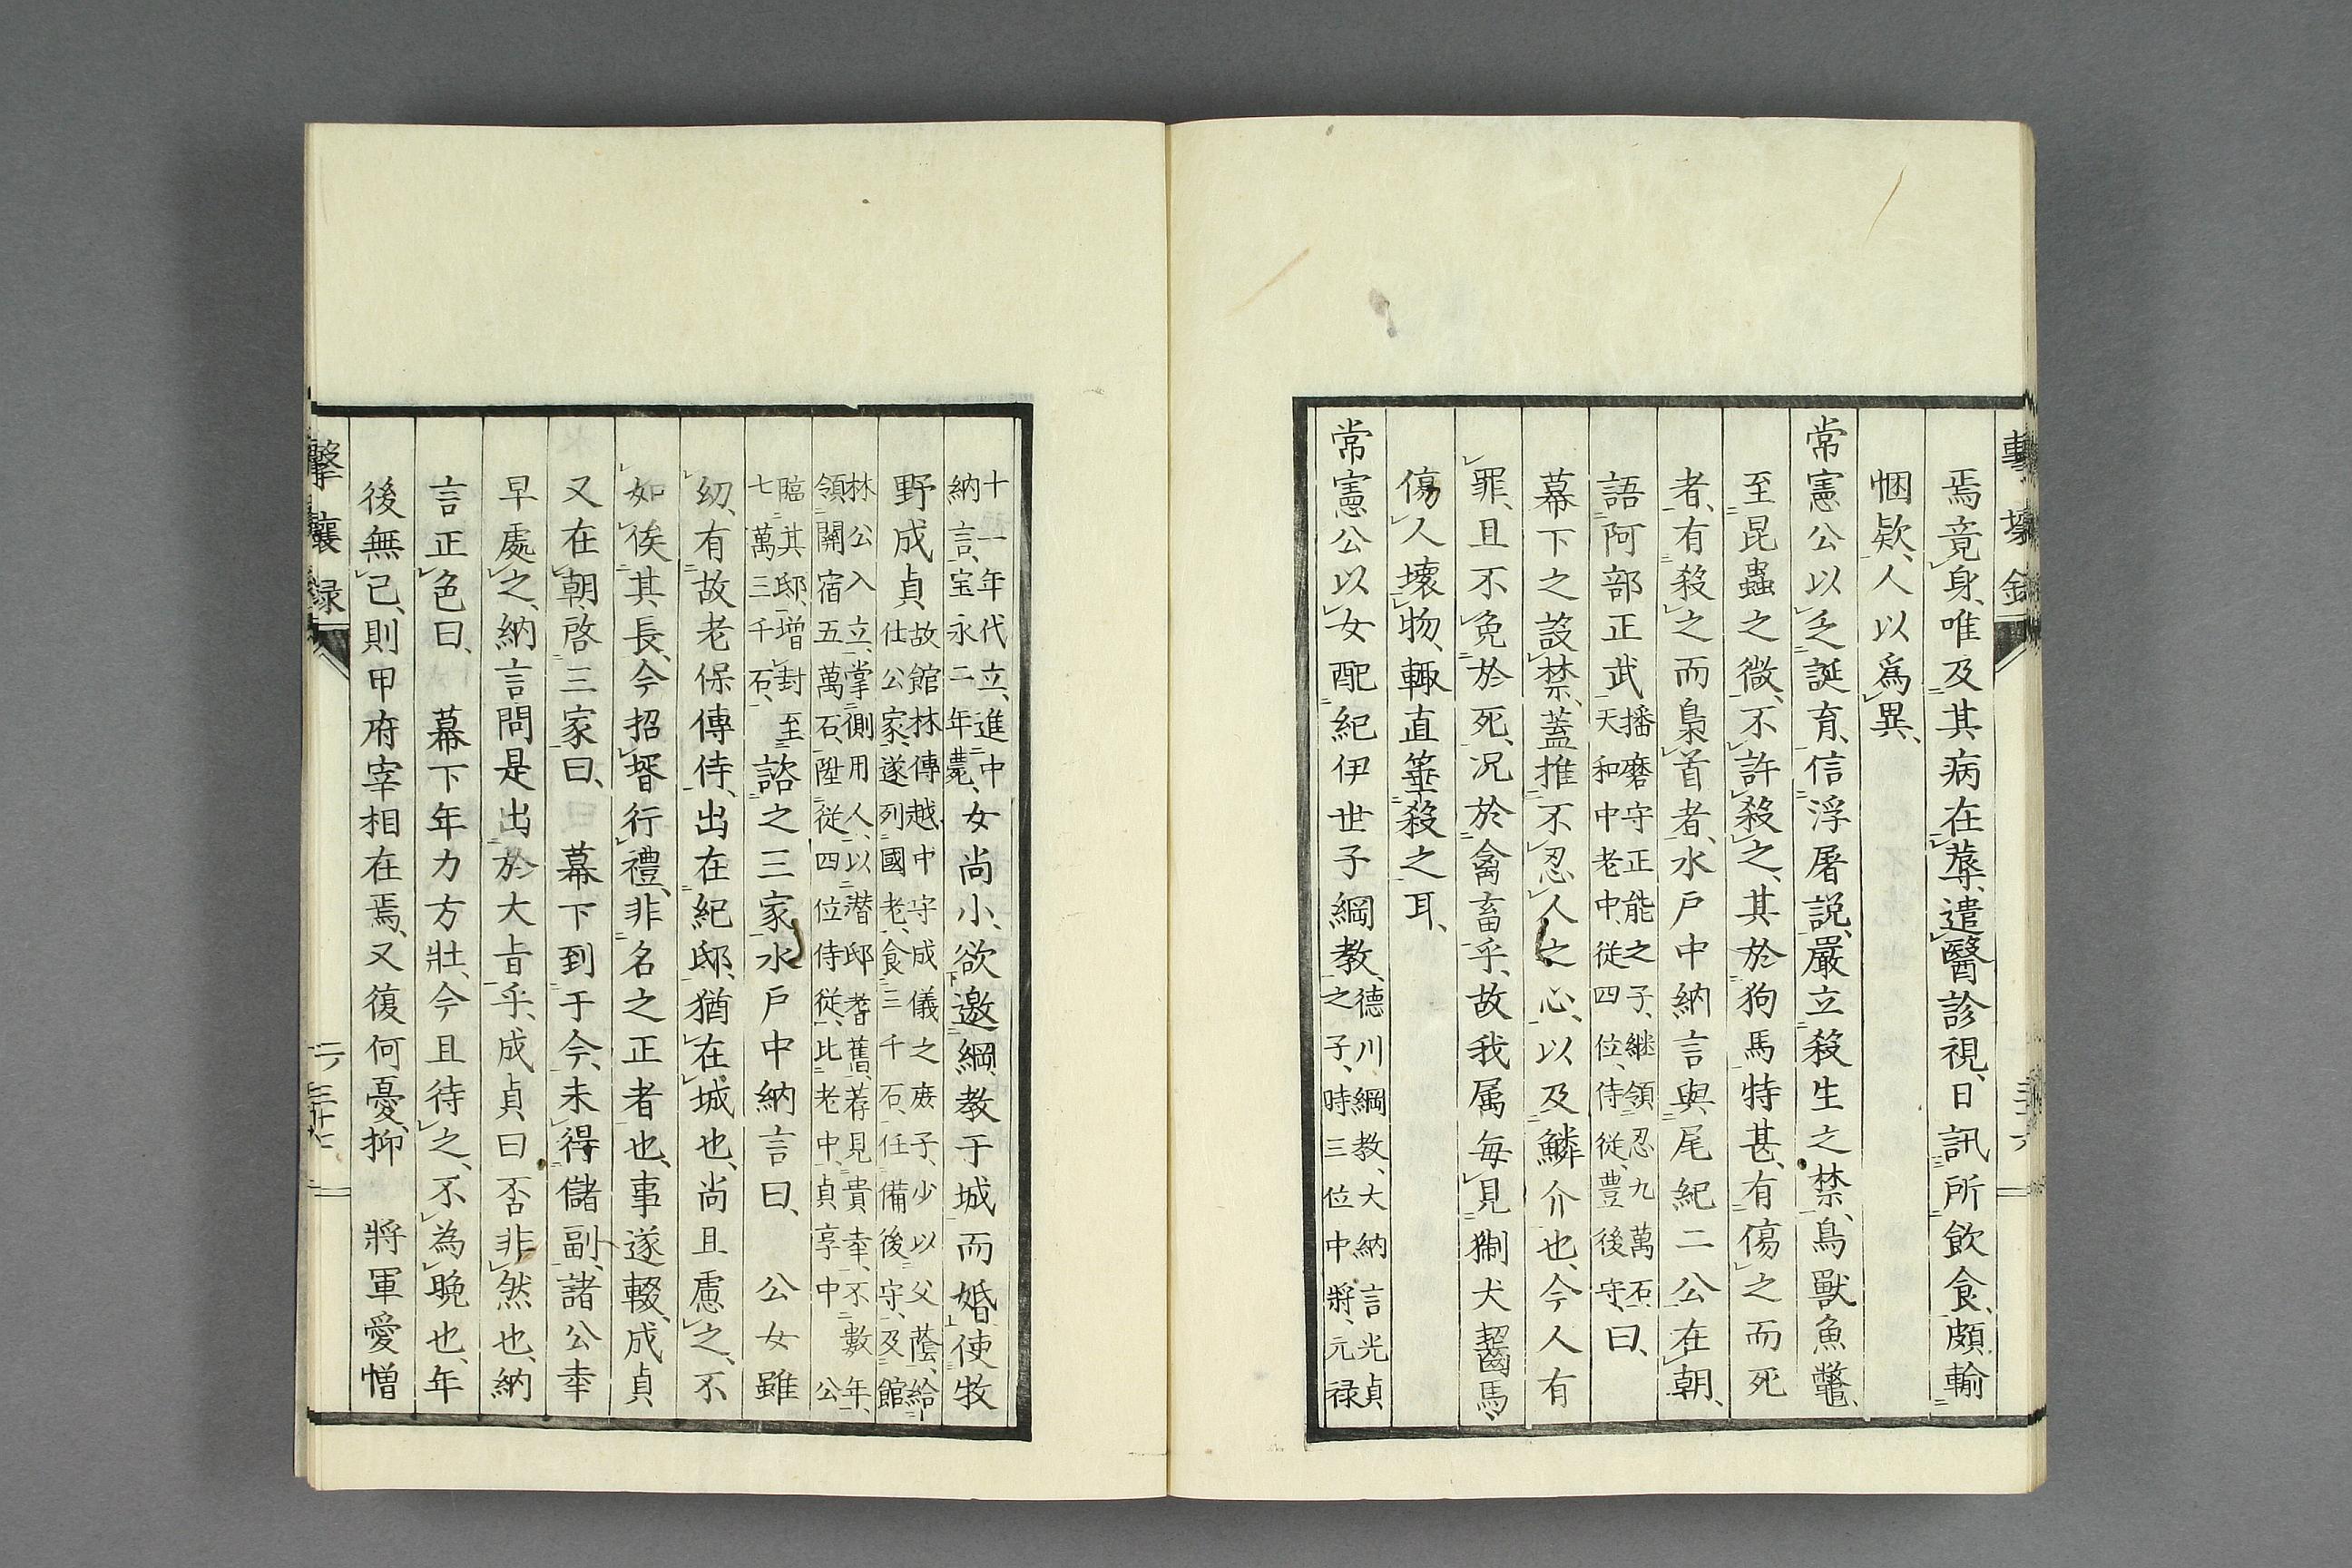 焉、竟身、唯及其病在蓐、遣醫診視、日訊所飲食、頗輸
悃欵、人以爲異、
常憲公以乏誕育、信浮屠説、嚴立殺生之禁、鳥獸魚鼈、
至昆蟲之微、不許殺之、其於狗馬特甚、有傷之而死
者、有殺之而梟首者、水戸中納言與尾紀二公在朝、
語阿部正武播磨守正能之子、継領忍九萬石、
天和中老中、従四位、侍従、豊後守、曰、
幕下之設禁、蓋推不忍人之心、以及鱗介也、今人有
罪、且不免於死、况於禽畜乎、故我属毎見猘犬齧馬、
傷人壊物、輙直箠殺之耳、
常憲公以女配紀伊世子綱教、徳川綱教、大納言光貞
之子、時三位中將、元禄
十一年代立、進中
納言、宝永二年薨、女尚小、欲邀綱教于城而婚、使牧
野成貞故館林傳越中守成儀之庶子、少以父蔭、給
仕公家、遂列國老、食三千石、任備後守、及館
林公入立、掌側用人、以潜邸耆舊、荐見貴幸、不數年、
領關宿五萬石、陞従四位侍従、比老中、貞享中公
臨其邸、増封至
七萬三千石、諮之三家、水戸中納言曰、公女雖
幼、有故老保傳侍、出在紀邸、猶在城也、尚且慮之、不
如俟其長、今招壻行禮、非名之正者也、事遂輟、成貞
又在朝、啓三家曰、幕下到于今、未得儲副、諸公幸
早處之、納言問是出於大旨乎、成貞曰否非然也、納
言正色曰、幕下年力方壯、今且待之、不為晩也、年
後無已、則甲府宰相在焉、又復何憂、抑將軍愛憎
擊壤録
三十七